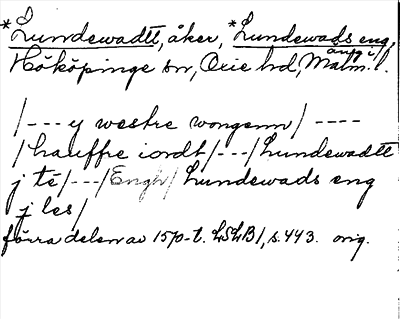 *Lundewadtt, åker, *Lundewads eng, äng i
Hököpinge sn, Oxie hd, Malm. l.
/--- y westre wongenn/ ----
/hauffre iordt/---/Lundewadtt
j té/---/Engh/ Lundewads eng
j les/
förra delen av 1570-t. LSLB1, s. 443. orig.